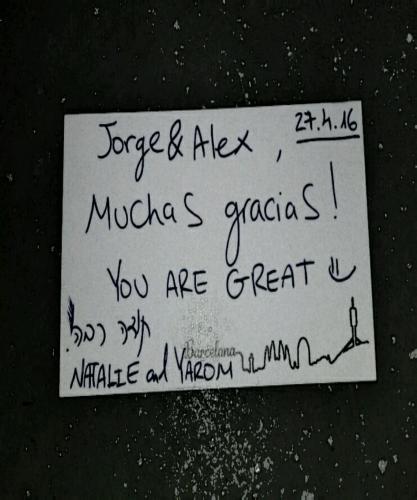 27.4.16
Jorge & Alex,
Muchas gracias!
YOU ARE GREAT
תודה רבה!
Barcelona
NATALIE and YAROM